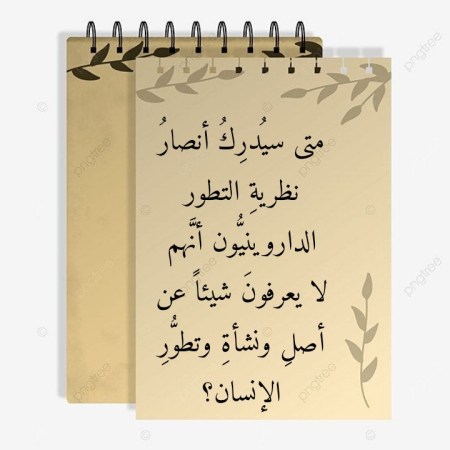 متى سيُدرِكُ أنصارُ
نظريةِ التطور
الداروينيُّون أنَّهم
لا يعرفونَ شيئاً عن
أصلِ ونشأةِ وتطوُّرِ
الإنسان؟